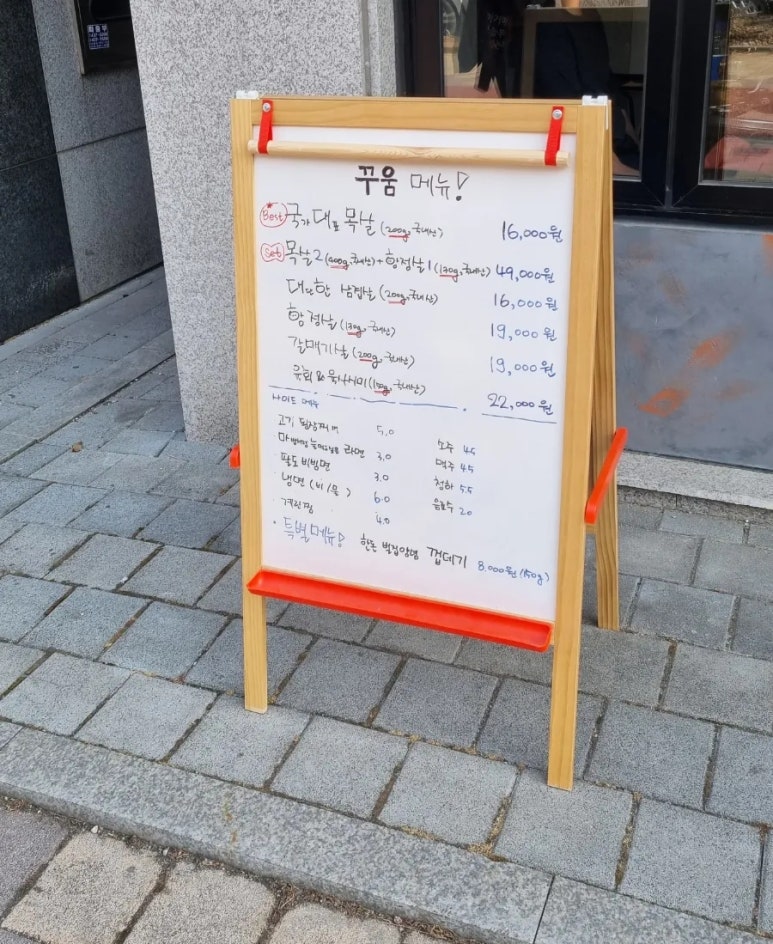 꾸움 메뉴!
Best 국가대표 목살 (200g, 국내산) 16,000원
Set 목살2 (400g, 국내산) + 항정살1 (130g, 국내산) 49,000원
대단한 삼겹살 (200g, 국내산) 16,000원
항정살 (130g, 국내산) 19,000원
갈매기살 (200g, 국내산) 19,000원
육회 & 육사시미 (150g, 국내산) 22,000원
사이드 메뉴
고기 된장찌개 5.0
라면 3.0
팔도비빔면 3.0
냉면 (비/물) 6.0
계란찜 4.0
소주 4.5
맥주 4.5
청하 5.5
음료수 2.0
· 특별메뉴! 한돈 벌집양념 껍데기 8,000원 (150g)